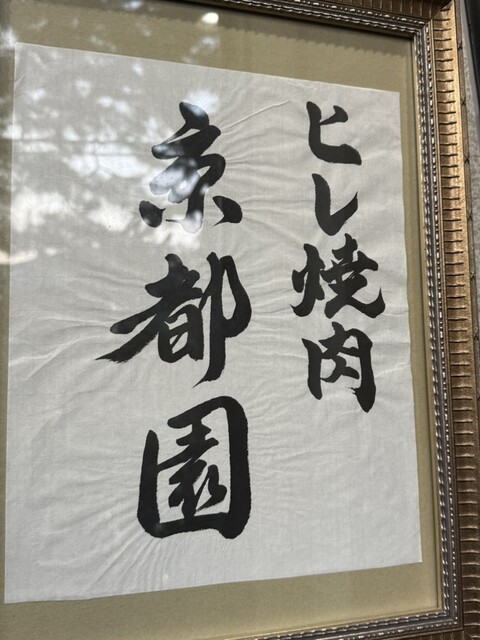 ヒレ焼肉
京都園